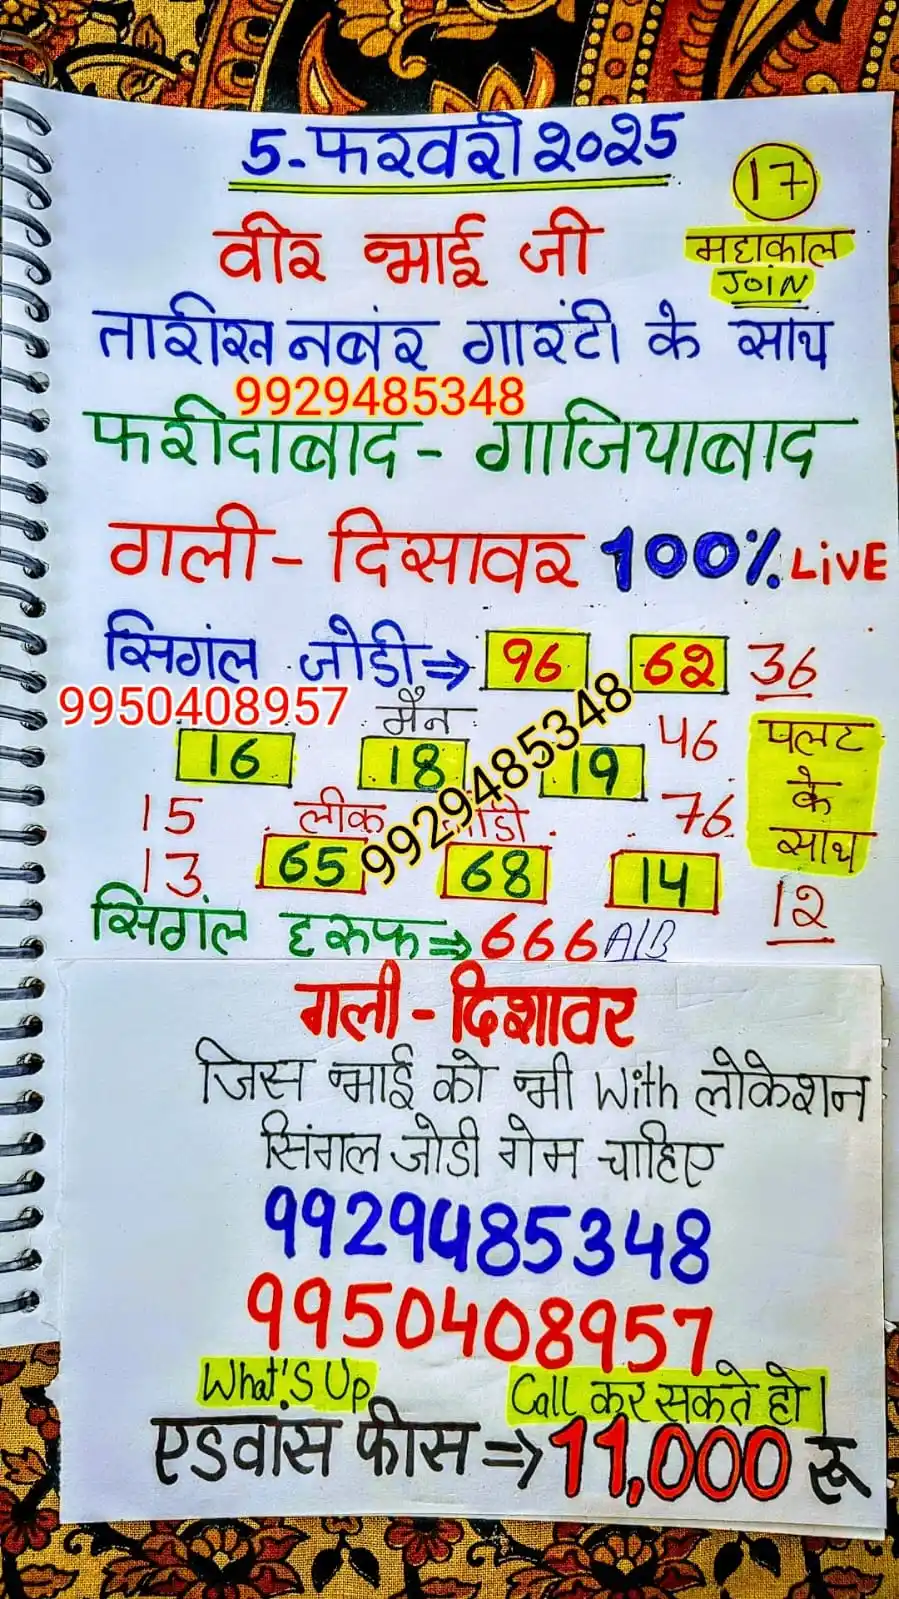 5-फरवरी2025
17
महाकाल
JOIN
वीर भाई जी
तारीख नबंर गारंटी के साथ
9929485348
फरीदाबाद - गाजियाबाद
गली - दिसावर 100% LiVE
सिगंल जोडी⇒ 96 62 36
9950408957
मैन
16 18 19 46
9929485348
पलट
के
साथ
15 लीक जोडी 76
13 65 68 14 12
सिगंल हरुफ⇒666 A/B
गली - दिशावर
जिस भाई को भी With लोकेशन
सिंगल जोडी गेम चाहिए
9929485348
9950408957
What'S Up Call कर सकते हो।
एडवांस फीस ⇒ 11,000 रू